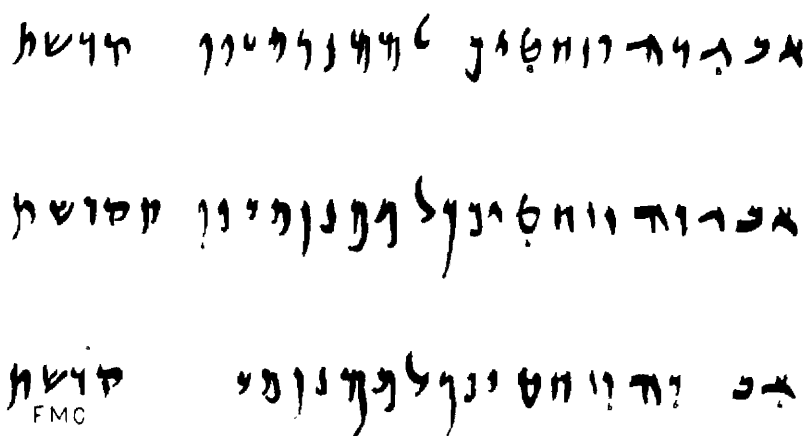 אבגדהוזחטיך למםנןסעפף קרשת
אבגדהוזחטיכךלמםנןסעפף צקרשת
אב דהוזחטיכךלמםנןסע קרשת
FMC